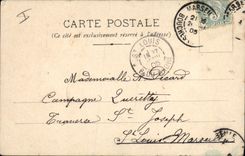 I
CARTE POSTALE
(Ce côté est exclusivement réservé à l'adresse)
ST LOUIS
Mademoiselle St Picard
Campagne
Traverse St Joseph
St Louis Marseille